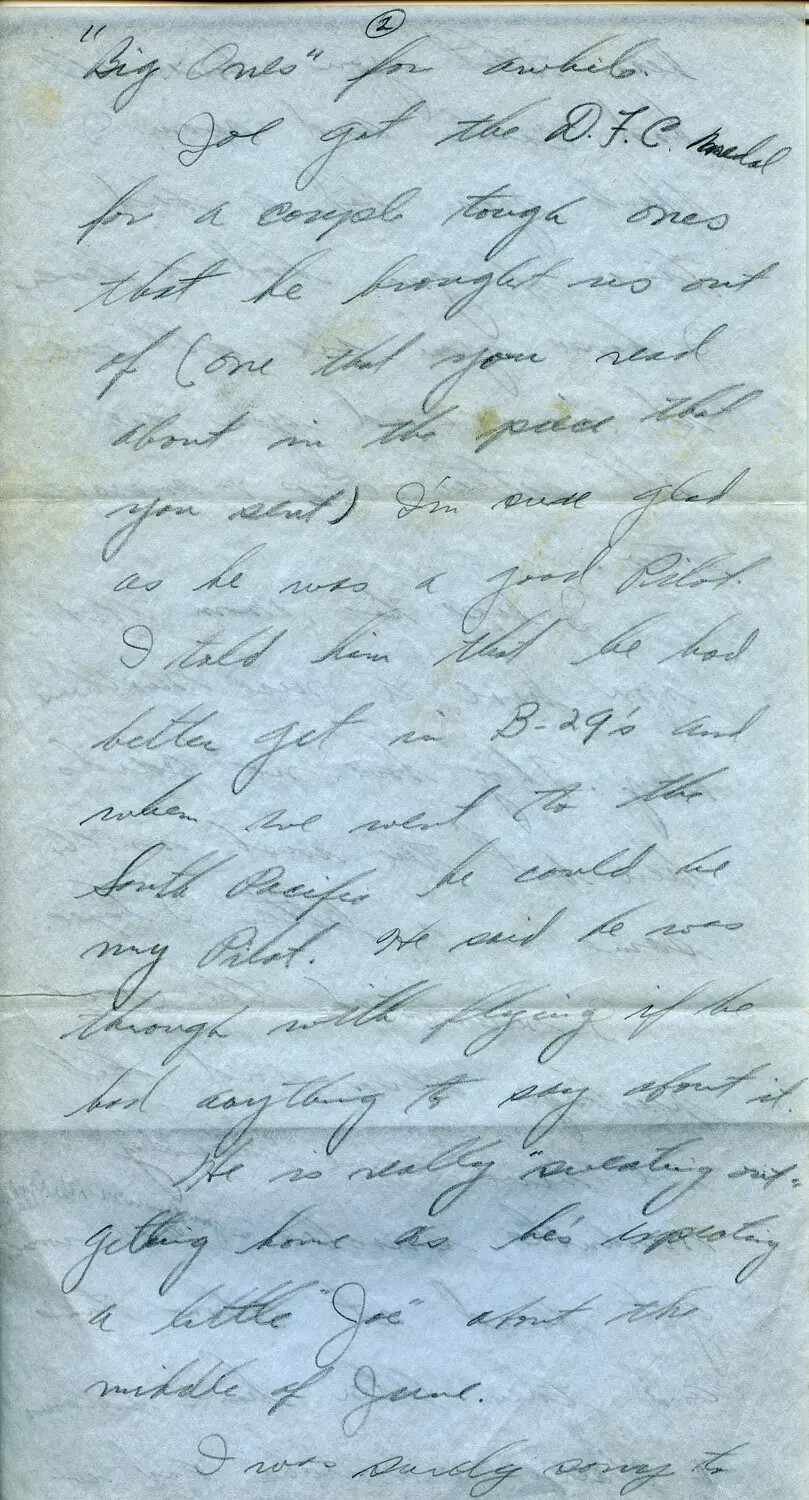 ②
"Big Ones" for awhile.
Joe got the D.F.C. medal
for a couple tough ones
that he brought us out
of (one that you read
about in the piece that
you sent) I'm sure glad
as he was a good Pilot.
I told him that he had
better get in B-29's and
when we went to the
South Pacific he could be
my Pilot. He said he was
through with flying if he
had anything to say about it.
He is really "sweating out"
getting home as he's expecting
a little "Joe" about the
middle of June.
I was surely sorry to